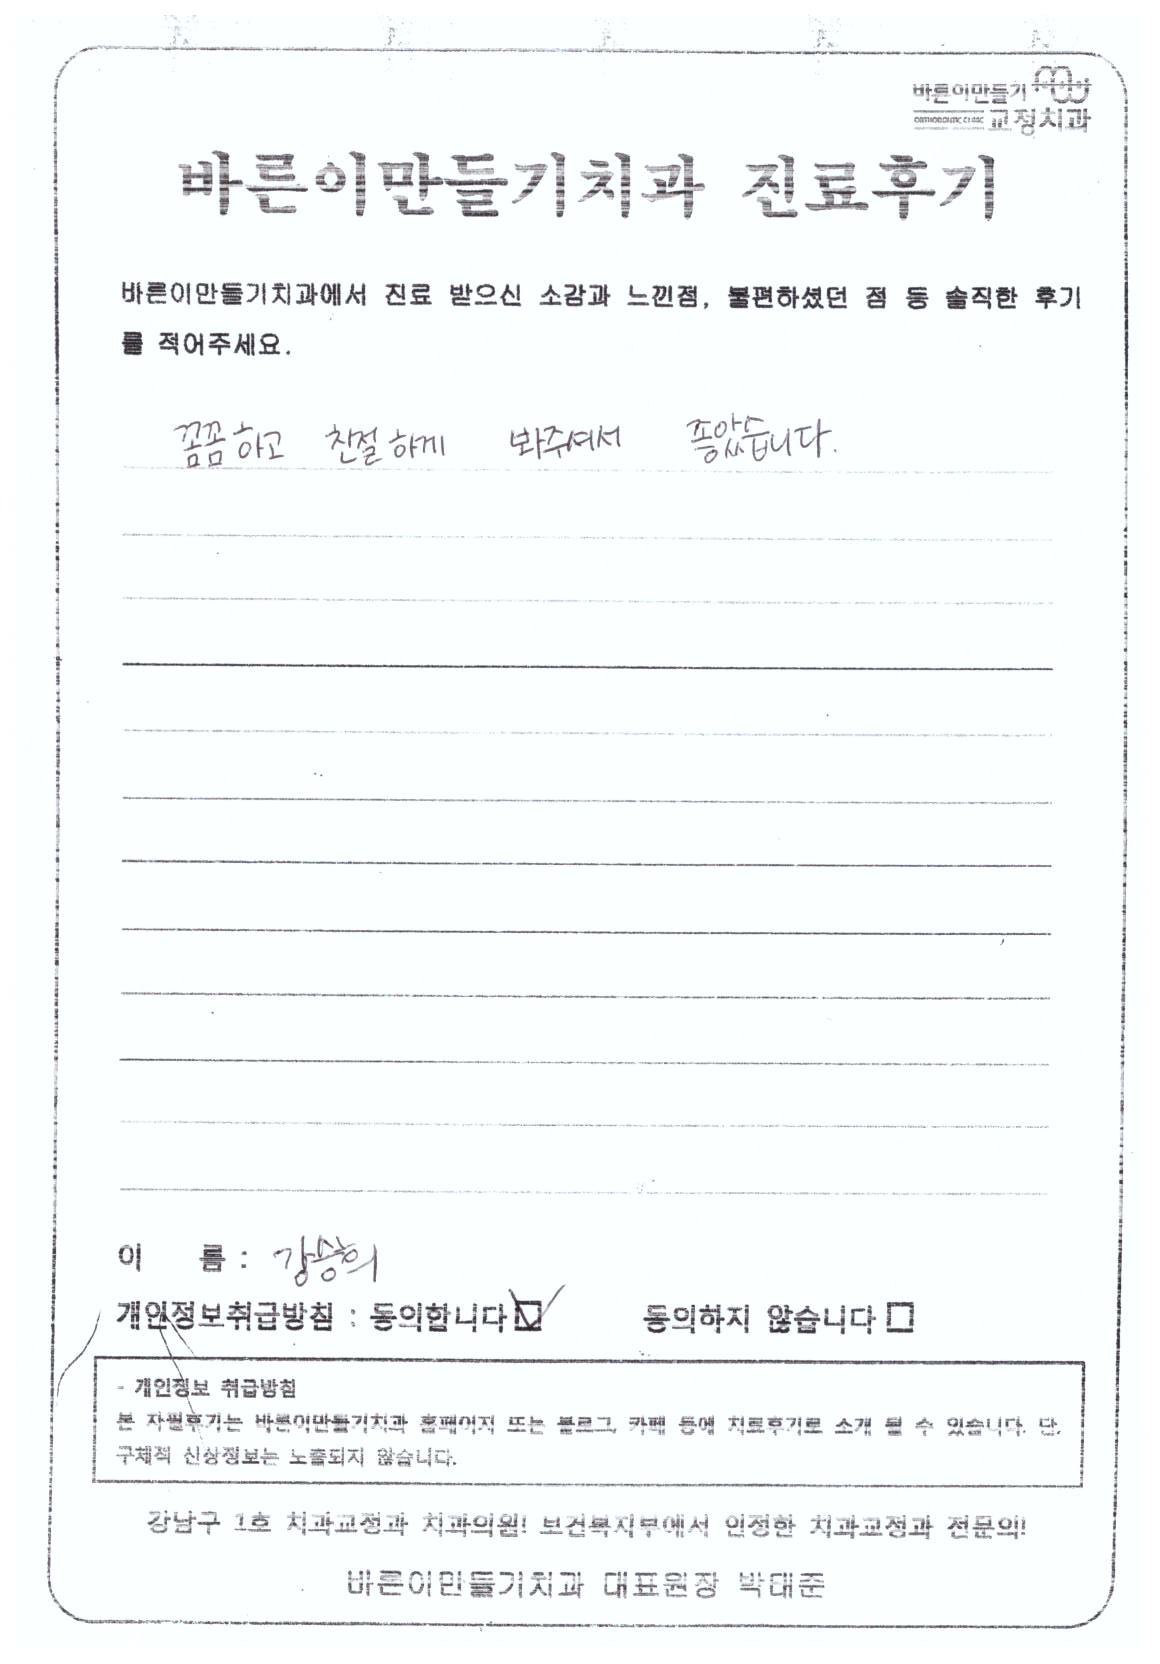 바른이만들기
ORTHODONTIC CLINIC 교정치과
바른이만들기치과 진료후기
바른이만들기치과에서 진료 받으신 소감과 느낀점, 불편하셨던 점 등 솔직한 후기
를 적어주세요.
꼼꼼하고 친절하게 봐주셔서 좋았습니다.
이 름 : 강승희
개인정보취급방침 : 동의합니다 동의하지 않습니다
- 개인정보 취급방침
본 자필후기는 바른이만들기치과 홈페이지 또는 블로그, 카페 등에 치료후기로 소개 될 수 있습니다. 단,
구체적 신상정보는 노출되지 않습니다.
강남구 1호 치과교정과 치과의원! 보건복지부에서 인정한 치과교정과 전문의!
바른이만들기치과 대표원장 박대준